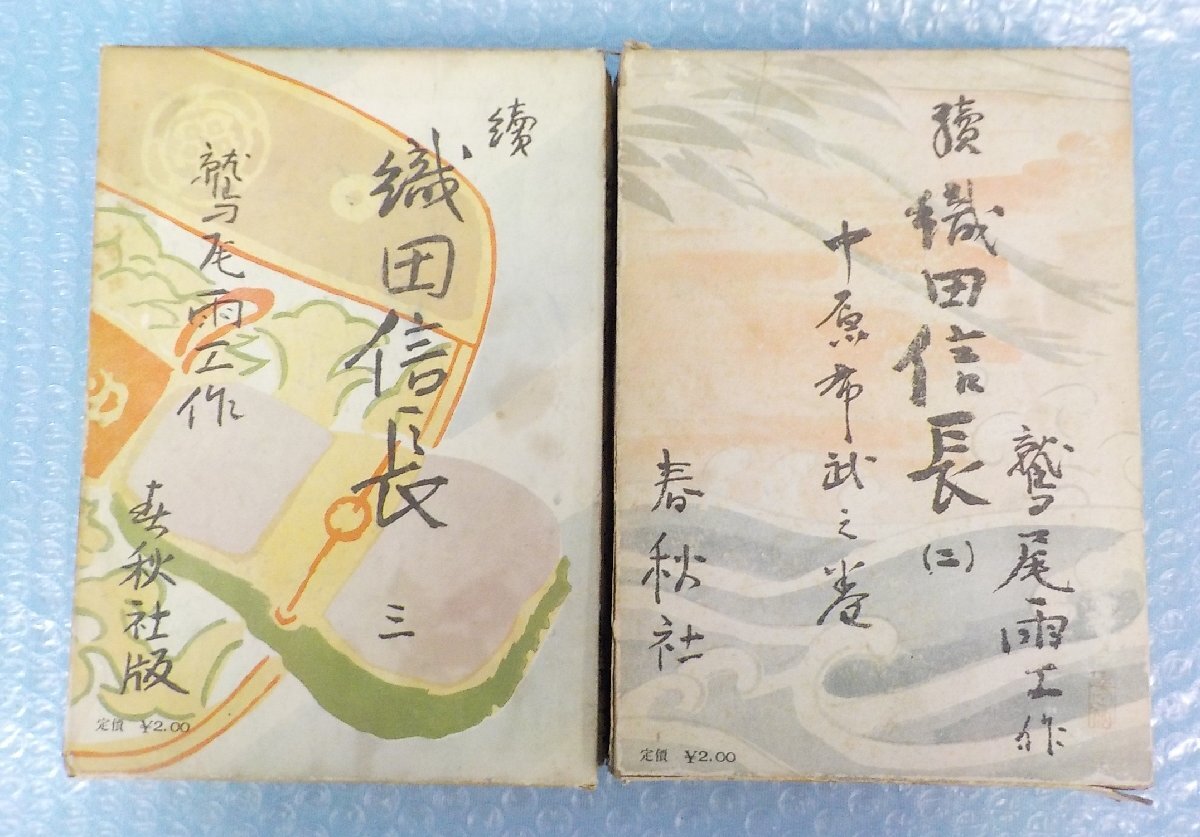 續
織田信長
三
鷲尾雨工作
春秋社版
定價 ¥2.00
續
織田信長
(二)
中原布武之巻
鷲尾雨工作
春秋社
定價 ¥2.00